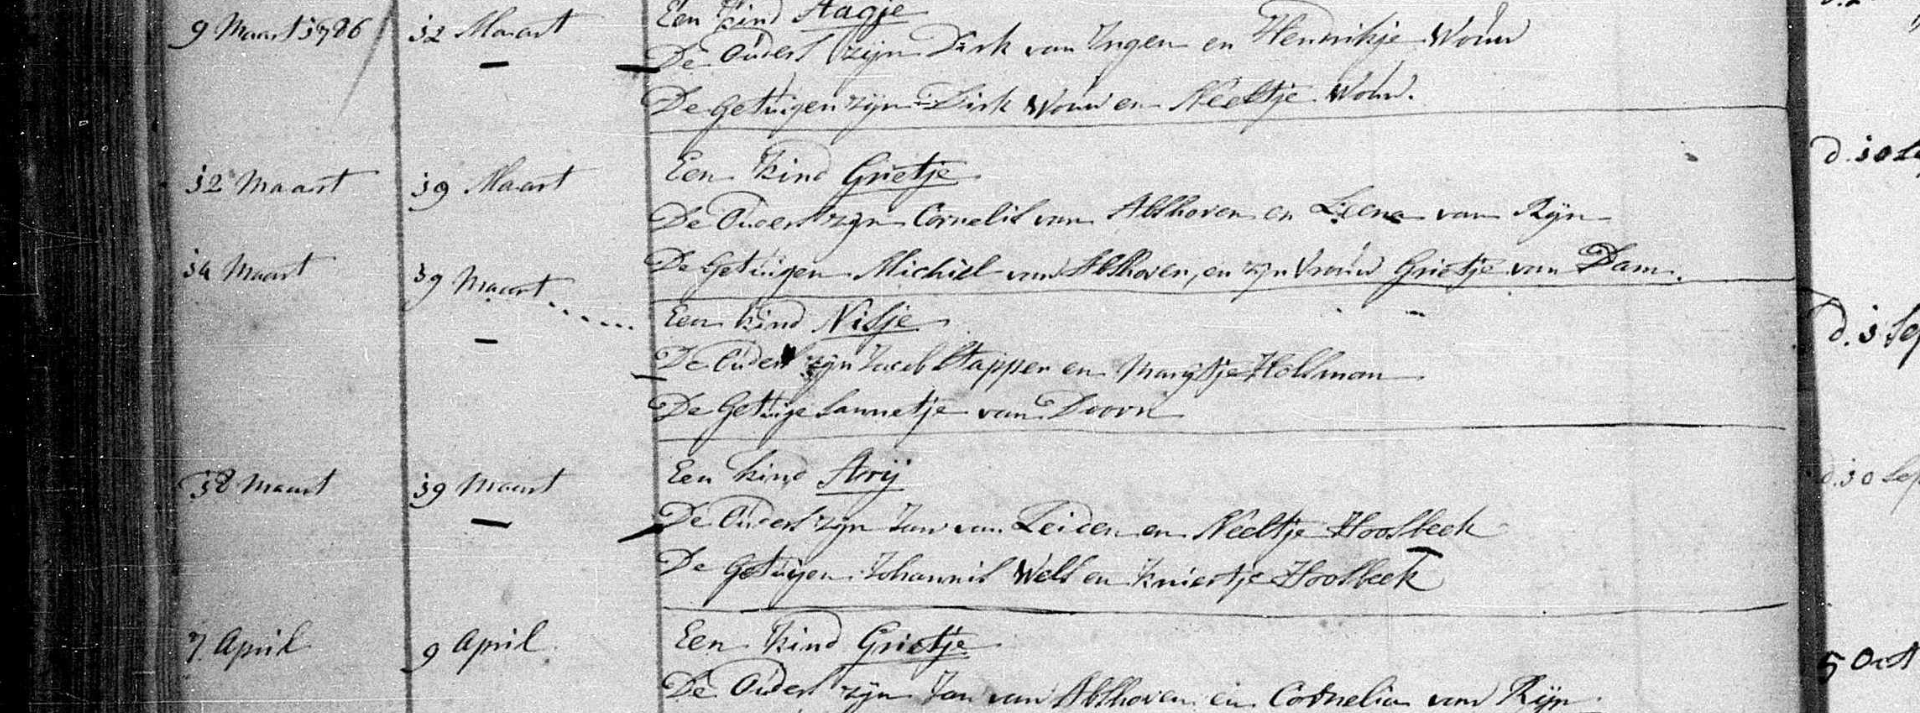 9 Maart 1786 12 Maart Een kind Aagje
De Ouders zijn Dirk van Ingen en Hendrikje Wouw
De Getuigen zijn Dirk Wouw en Neeltje Wouw.
12 Maart 19 Maart Een kind Grietje
De Ouders zijn Cornelis van Abshoven en Leena van Rijn
14 Maart 19 Maart De Getuigen Michiel van Abshoven, en zijn Vrouw Grietje van Dam.
Een kind Nisje
De Ouders zijn Jacob Stapper en Marijtje Hollman
De Getuige Sannetje van Doorn
18 Maart 19 Maart Een kind Arij
De Ouders zijn Jan van Leiden en Neeltje Hoosbeek
De Getuigen Johannis Wels en Kniertje Hoosbeek
7 April 9 April Een kind Grietje
De Ouders zijn Jan van Abshoven en Cornelia van Rijn
d. 10
d. 1 Sep
d. 10 Sep
5 Oct